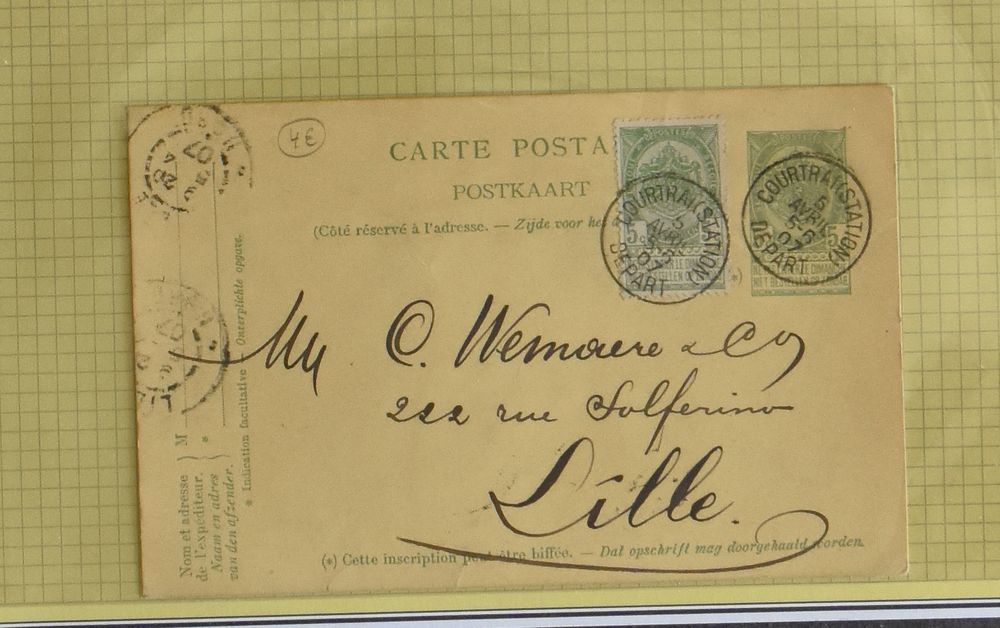 4€
CARTE POSTA
POSTKAART
(Côté réservé à l'adresse. — Zijde voor het
POSTES
5
COURTRAI (STATION)
5
AVRIL
5-6
07
DEPART
COURTRAI (STATION)
5
AVRIL
5-6
07
DEPART
5
NIET BESTELLEN OP ZONDAG
(*)
MM C. Wemaere & Co
222 rue Solferino
Lille.
(*) Cette inscription peut être biffée. — Dat opschrift mag doorgehaald worden.
Nom et adresse
de l'expéditeur.
Naam en adres
van den afzender.
} M
} *
* Indication facultative Onverplichte opgave.